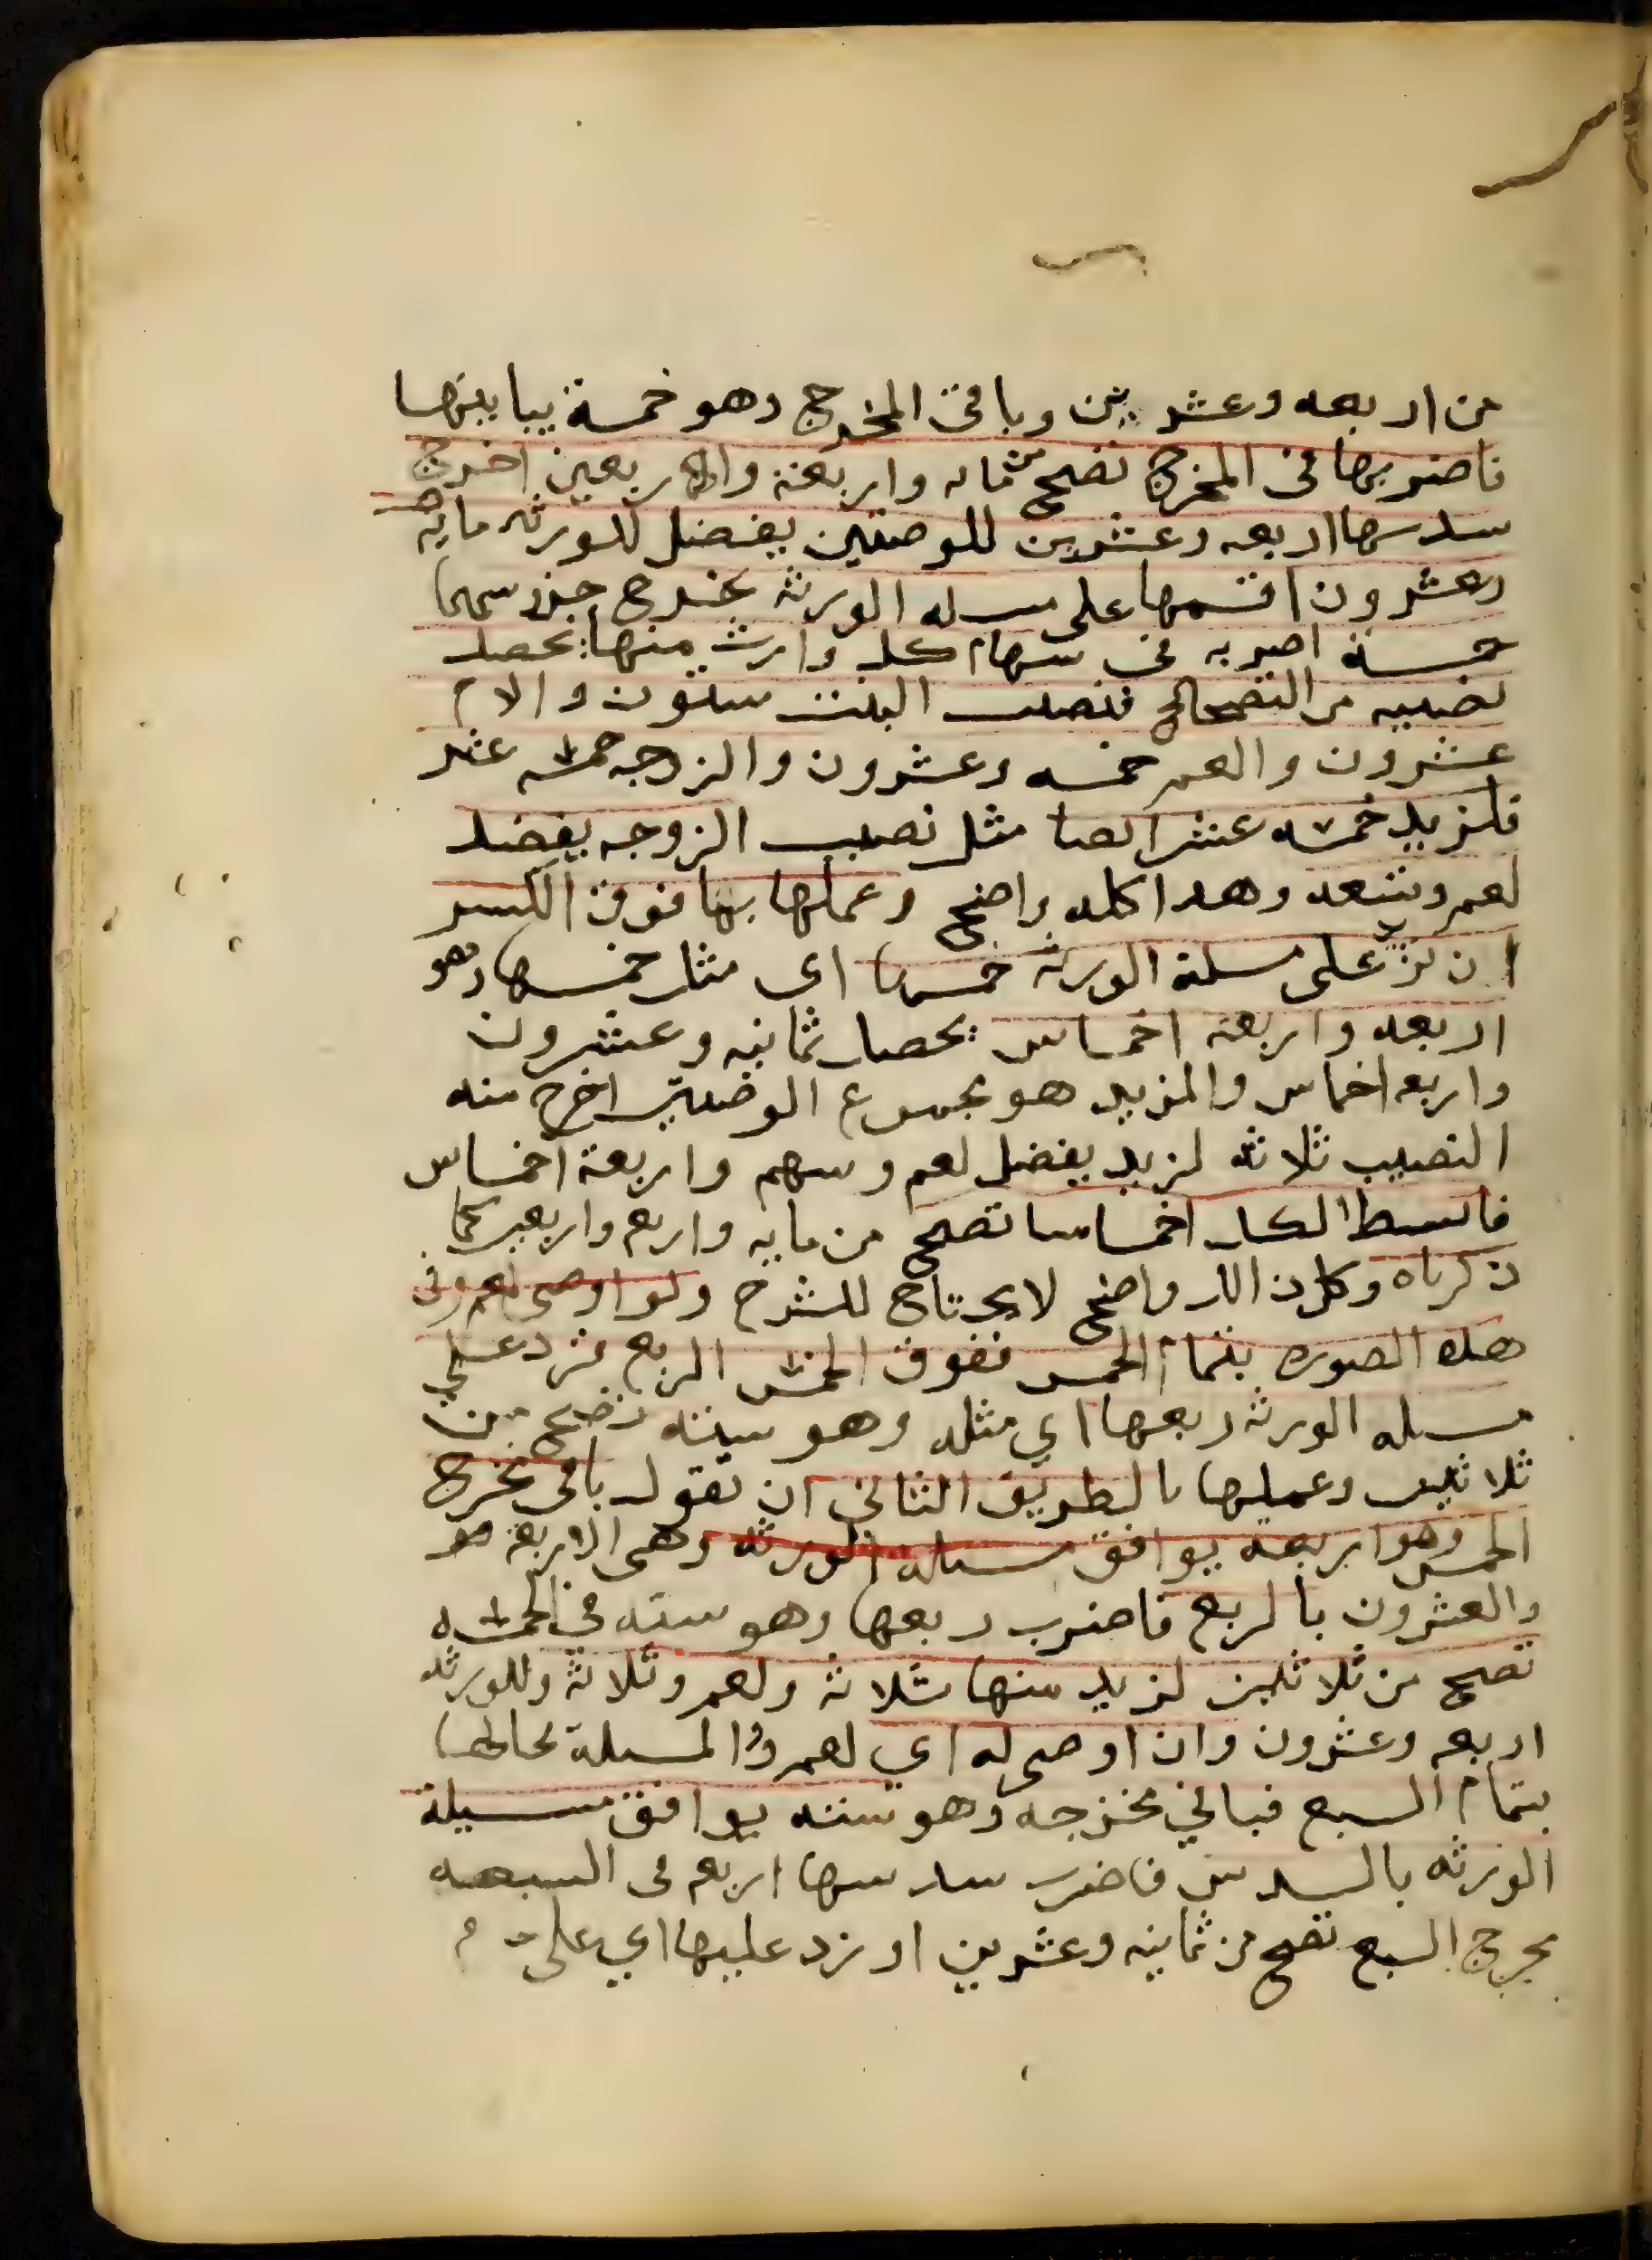 من اربعه وعشرين وباقى المخرج وهو خمسة يباينها
فاضربها فى المخرج تصح من مايه واربعة واربعين اخرج
سدسها اربعه وعشرين للوصيتين يفضل للورثه مايه
وعشرون اقسمها على مسله الورثه يخرج جزء سهمها
خمسة اضربه فى سهام كل وارث منها يحصل
نصيبه من التصحيح فنصيب البنت ستون والام
عشرون والعم خمسه وعشرون والزوجه خمسه عشر
فلزيد خمسه عشر ايضا مثل نصيب الزوجه يفضل
لعمرو تسعه وهذا كله واضح وعملها بما فوق الكسر
ان تزيد على مسلة الورثه خمسها اى مثل خمسها وهو
اربعه واربعة اخماس يحصل ثمانيه وعشرون
واربعه اخماس والمزيد هو مجموع الوصيتين اخرج منه
النصيب ثلاثه لزيد يفضل لعمرو سهم واربعة اخماس
فابسط الكل اخماسا تصح من مايه واربع واربعين كما
ذكرناه وكل ذلك واضح لا يحتاج للشرح ولو اوصى لعمرو فى
هذه الصوره بتمام الخمس ففوق الخمس الربع فزد على
مسله الورثه ربعها اي مثله وهو سته تصح من
ثلاثين وعملها بالطريق الثانى ان تقول باقى مخرج
الخمس وهو اربعه يوافق مسله الورثه وهى الاربعة
والعشرون بالربع فاضرب ربعها وهو سته فى الخمسه
تصح من ثلاثين لزيد منها ثلاثه ولعمرو ثلاثة وللورثه
اربعه وعشرون وان اوصى له اي لعمرو والمسلة بحالها
بتمام السبع فباقى مخرجه وهو سته يوافق مسيلة
الورثه بالسدس فاضرب سدسها اربع فى السبعه
مخرج السبع تصح من ثمانيه وعشرين او زد عليها اي على